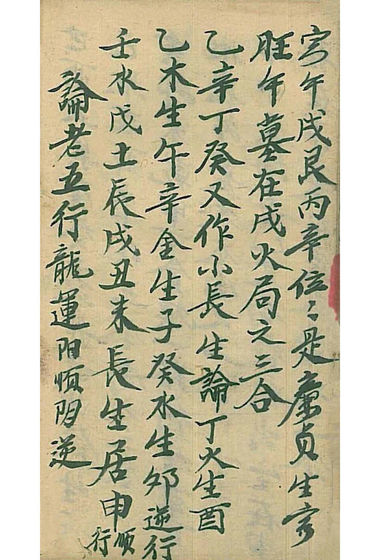 寅午戌艮丙辛位〻是廉貞生寅
旺午墓在戌火局之三合
乙辛丁癸又作小長生論丁火生酉
乙木生午辛金生子癸水生夘逆行
壬水戊土辰戌丑未長生居申順行
論老五行龍運阳順阴逆